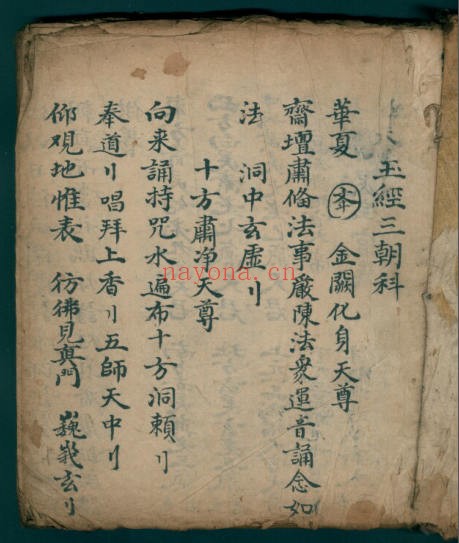 玉經三朝科
華夏 本 金闕化身天尊
齋壇肅俻法事嚴陳法衆運音誦念如
法 洞中玄虛〢
十方肅净天尊
向来誦持咒水遍布十方洞頼〢
奉道〢唱拜上香〢五師天中〢
仰观地惟表 彷彿見真門 巍峩玄〢
nayona.cn